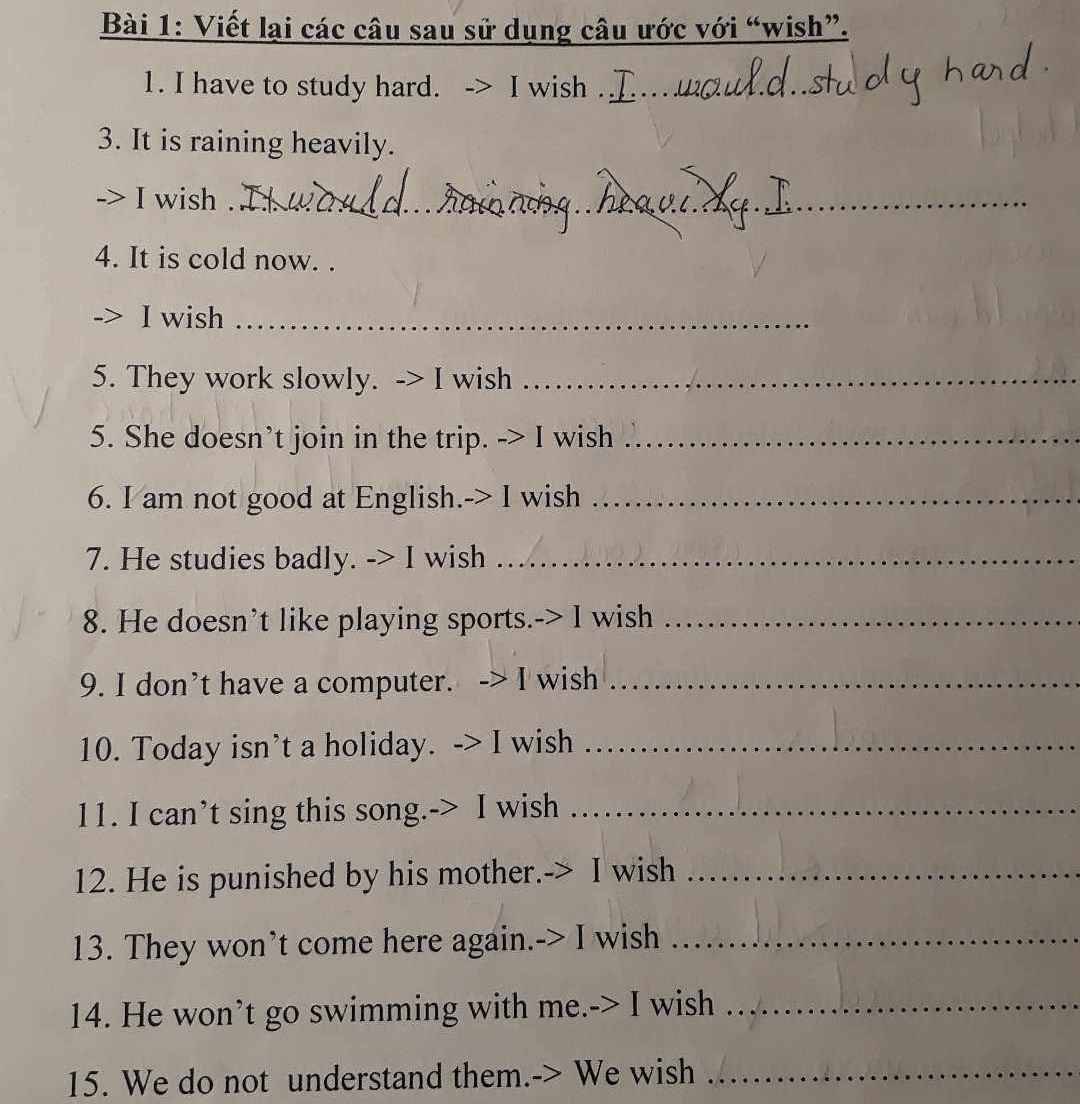 Bài 1: Viết lại các câu sau sử dụng câu ước với “wish”.
1. I have to study hard. -> I wish ..I....would..study hard.
3. It is raining heavily.
-> I wish .It would...rainning..heavily..I.................
4. It is cold now. .
-> I wish ..........................................................
5. They work slowly. -> I wish ........................................................
5. She doesn’t join in the trip. -> I wish ..............................................
6. I am not good at English.-> I wish .................................................
7. He studies badly. -> I wish ..........................................................
8. He doesn’t like playing sports.-> I wish ..........................................
9. I don’t have a computer. -> I wish ...............................................
10. Today isn’t a holiday. -> I wish .................................................
11. I can’t sing this song.-> I wish ...................................................
12. He is punished by his mother.-> I wish .......................................
13. They won’t come here again.-> I wish .........................................
14. He won’t go swimming with me.-> I wish ...................................
15. We do not understand them.-> We wish .....................................